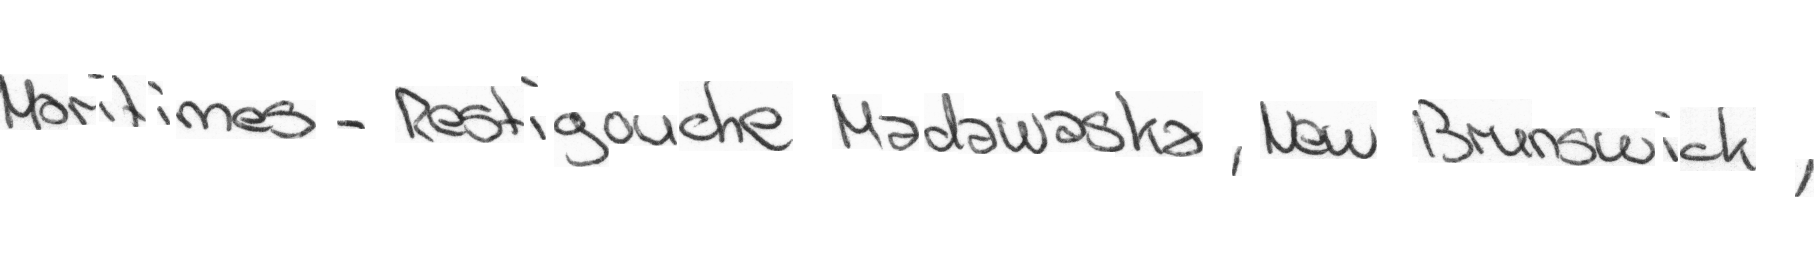 Maritimes - Restigouche Madawaska , New Brunswick ,